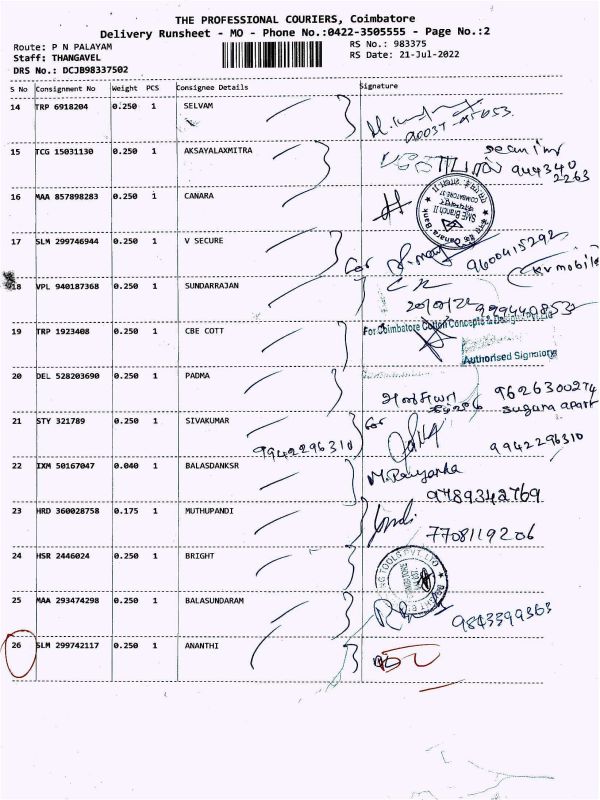 THE PROFESSIONAL COURIERS, Coimbatore
Delivery Runsheet - MO - Phone No.:0422-3505555 - Page No.:2
Route: P N PALAYAM
RS No.: 983375
Staff: THANGAVEL
RS Date: 21-Jul-2022
DRS No.: DCJB98337502
S No Consignment No Weight PCS Consignee Details Signature
14 TRP 6918204 0.250 1 SELVAM
15 TCG 15031130 0.250 1 AKSAYALAXMITRA
944340
2263
16 MAA 857898283 0.250 1 CANARA
Canara Bank
SME Branch II
17 SLM 299746944 0.250 1 V SECURE
for 9600415292
KV mobile
18 VPL 940187368 0.250 1 SUNDARRAJAN
For Coimbatore Cotton Concepts & Designs Pvt Ltd
19 TRP 1923408 0.250 1 CBE COTT
Authorised Signatory
20 DEL 528203690 0.250 1 PADMA
9626300274
suguna apart
21 STY 321789 0.250 1 SIVAKUMAR
for
9942296310 9942296310
22 IXM 50167047 0.040 1 BALASDANKSR
M. Priyanka
9789342769
23 HRD 360028758 0.175 1 MUTHUPANDI
7708119206
24 HSR 2446024 0.250 1 BRIGHT
TOOLS PVT. LTD
25 MAA 293474298 0.250 1 BALASUNDARAM
9843399363
26 SLM 299742117 0.250 1 ANANTHI